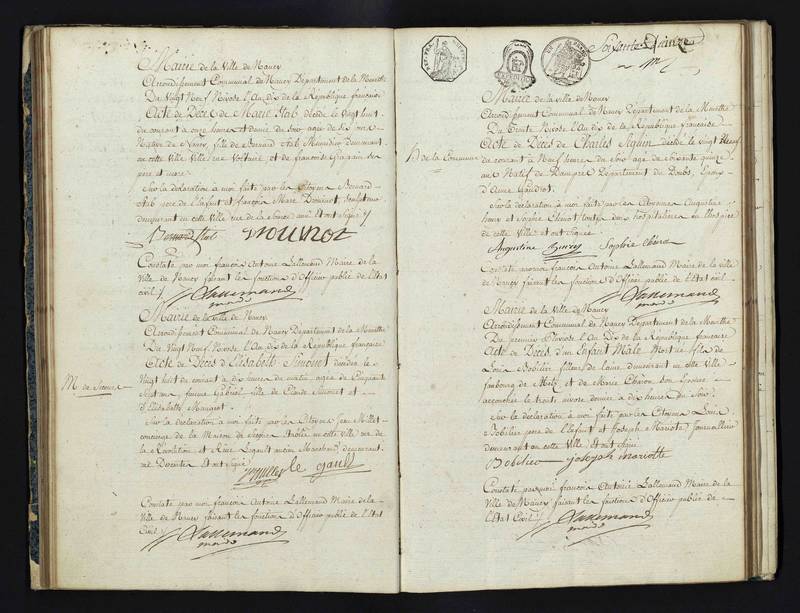 Mairie de la Ville de Nancy
Arrondissement Communal de Nancy Département de la Meurthe
Du Vingt Neuf Nivose l'An dix de la République française
Acte de Décès de Marie Stab décédée le Vingt huit
du courant à onze heures du soir agée de six mois
Native de Nancy, fille de Bernard Stab Menuisier demeurant
en cette Ville rue Voltaire, et de françoise ses
père et mere
Sur la déclaration à moi faite par le Citoyen Bernard
Stab pere de l'Enfant et françois Marc Drouvrot, sculpteur
demeurant en cette Ville rue de la Source ont Signé
Bernard Stab Drouvrot
Constaté par moi françois Antoine Lallemand Maire de la
Ville de Nancy faisant les fonctions d'Officier public de l'Etat
civil
Lallemand
Mairie de la Ville de Nancy
Arrondissement Communal de Nancy Département de la Meurthe
Du Vingt Neuf Nivose l'An dix de la République française
Acte de Décès d'Elisabeth Simonet décédée le
M. de Secours
Vingt huit du courant à dix heures du matin agée de Cinquante
Sept ans, fille de Claude Simonet et
d'Elisabeth Mangeot
Sur la déclaration à moi faite par les Citoyens Jean Millet
concierge de la Maison de Secours Etablie en cette Ville rue de
la Révolution et Legault ancien Marchand demeurant
même ont Signé
Millet le gault
Constaté par moi françois Antoine Lallemand Maire de la
Ville de Nancy faisant les fonctions d'Officier public de l'Etat
Civil
Lallemand
Soixante Quinze
Mairie de la Ville de Nancy
Arrondissement Communal de Nancy Département de la Meurthe
Du Trente Nivose An dix de la République française
Acte de Décès de Charles décédé le Vingt Neuf
H de la Commune
du courant à Neuf heures du Soir agé de Soixante quinze
ans Natif de Département du Doubs, Epoux
d'Anne Gaudiot
Sur la déclaration à moi faite par les Citoyennes Augustine
et Sophie toutes deux hospitalières en l'hospice
de cette Ville ont Signé
Augustine Sophie
Constaté par moi françois Antoine Lallemand Maire de la Ville
de Nancy faisant les fonctions d'Officier public de l'Etat civil
Lallemand
Mairie de la Ville de Nancy
Arrondissement Communal de Nancy Département de la Meurthe
Du premier l'An dix de la République française
Acte de Décès d'un Enfant Mâle Mort né fils de
Louis Bobilier fileur de Laine demeurant en cette Ville
faubourg de Metz et de Marie Charon son Epouse
accouchée le trente nivose dernier à dix heures du Soir
Sur la déclaration à moi faite par les Citoyens Louis
Bobilier pere de l'Enfant et Joseph Mariotte Journallier
demeurant en cette Ville ont Signé
Bobilier joseph mariotte
Constaté par moi françois Antoine Lallemand Maire de la
Ville de Nancy faisant les fonctions d'Officier public de
l'Etat Civil
Lallemand